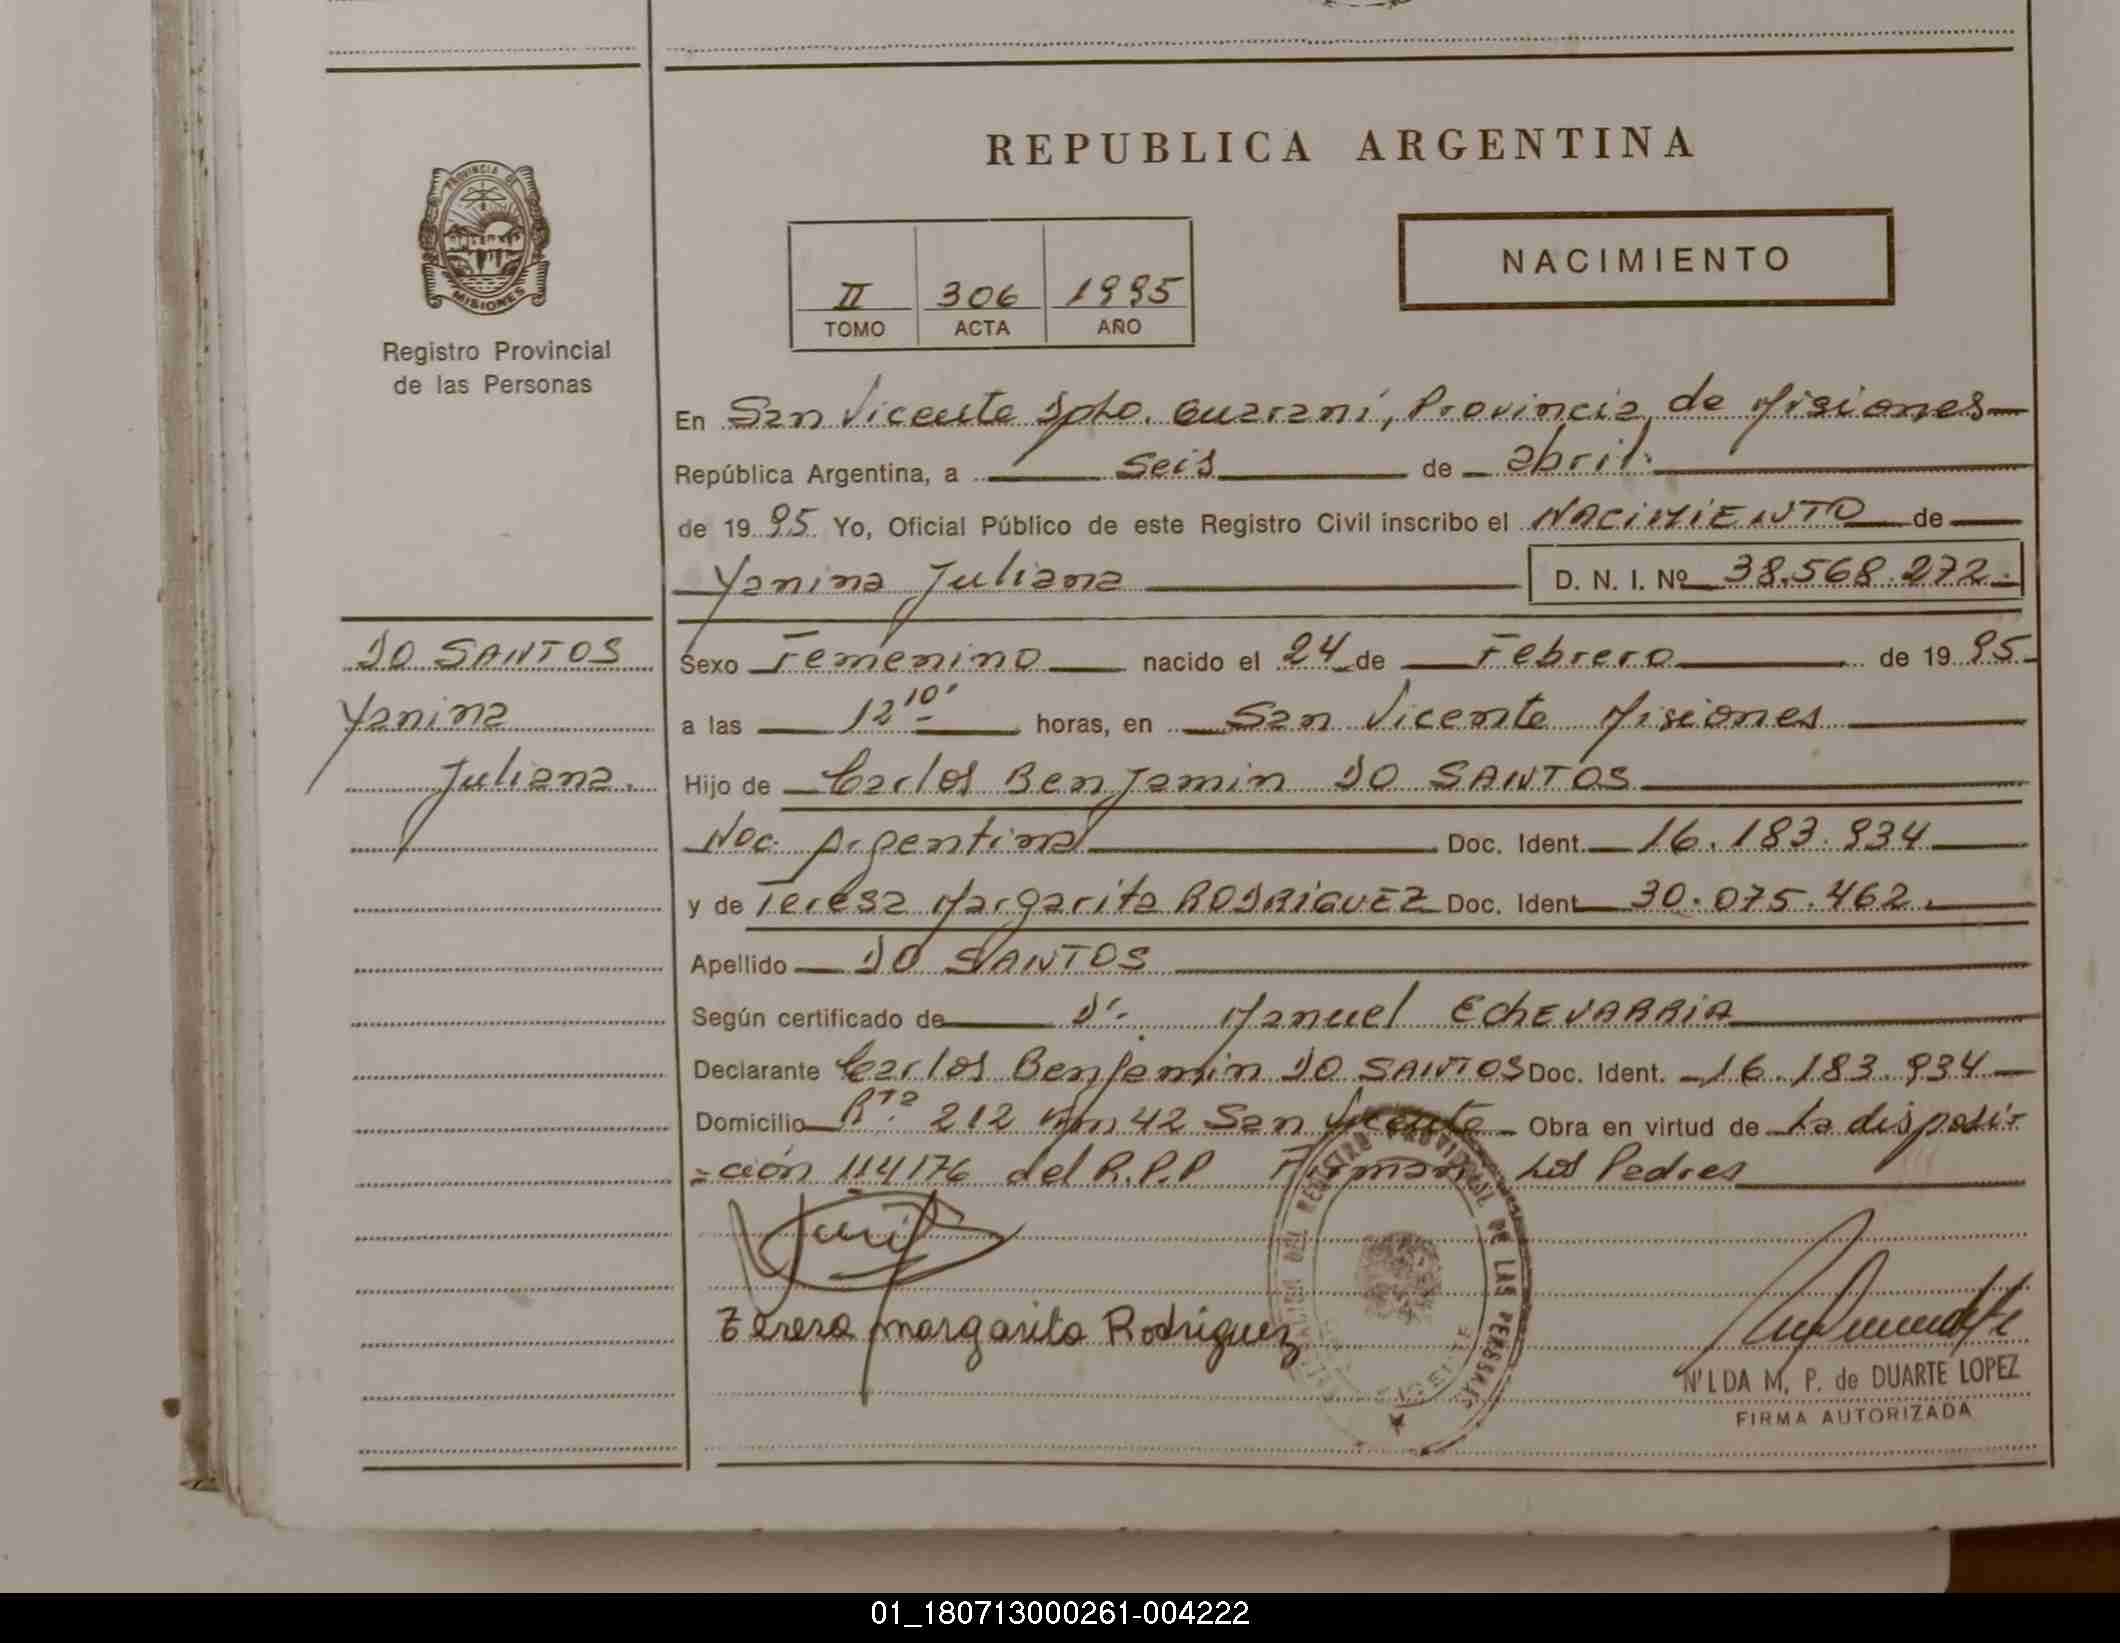 REPUBLICA ARGENTINA
PROVINCIA DE
MISIONES
Registro Provincial
de las Personas
NACIMIENTO
II 306 1995
TOMO ACTA AÑO
En San Vicente Dpto. Guaraní, Provincia de Misiones
República Argentina, a seis de abril.
de 1995. Yo, Oficial Público de este Registro Civil inscribo el NACIMIENTO de
Yanina Juliana D. N. I. Nº 38.568.272.
DO SANTOS
Yanina
Juliana.
Sexo Femenino nacido el 24 de Febrero de 1995.
a las 12 10' horas, en San Vicente Misiones
Hijo de Carlos Benjamin DO SANTOS
Nac. Argentina Doc. Ident. 16.183.934
y de Teresa Margarita RODRIGUEZ Doc. Ident 30.075.462.
Apellido DO SANTOS
Según certificado de Dr. Manuel ECHEVARRIA
Declarante Carlos Benjamin DO SANTOS Doc. Ident. 16.183.934
Domicilio Rta. 212 Km 42 San Vicente Obra en virtud de La disposi=
=ción 114/76 del R.P.P Firman Los Padres
Teresa margarita Rodriguez
DEL REGISTRO PROVINCIAL DE LAS PERSONAS
N'LDA M. P. de DUARTE LOPEZ
FIRMA AUTORIZADA
01_180713000261-004222